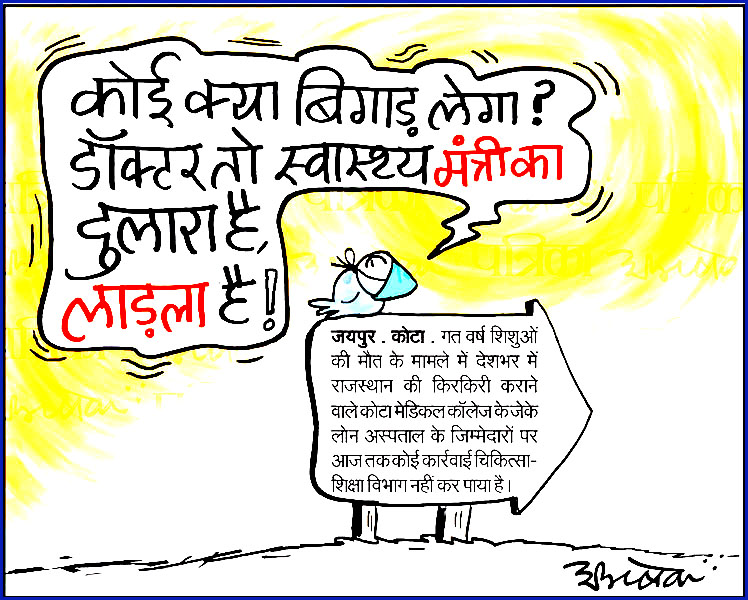 कोई क्या बिगाड़ लेगा?
डॉक्टर तो स्वास्थ्य मंत्री का
दुलारा है,
लाड़ला है!
जयपुर . कोटा . गत वर्ष शिशुओं
की मौत के मामले में देशभर में
राजस्थान की किरकिरी कराने
वाले कोटा मेडिकल कॉलेज के जेके
लोन अस्पताल के जिम्मेदारों पर
आज तक कोई कार्रवाई चिकित्सा-
शिक्षा विभाग नहीं कर पाया है।
पत्रिका